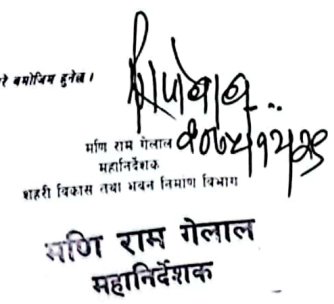 रे बमोजिम हुनेछ ।
मणि राम गेलाल
२०७५।१२।२९
महानिर्देशक
शहरी विकास तथा भवन निर्माण विभाग
मणि राम गेलाल
महानिर्देशक